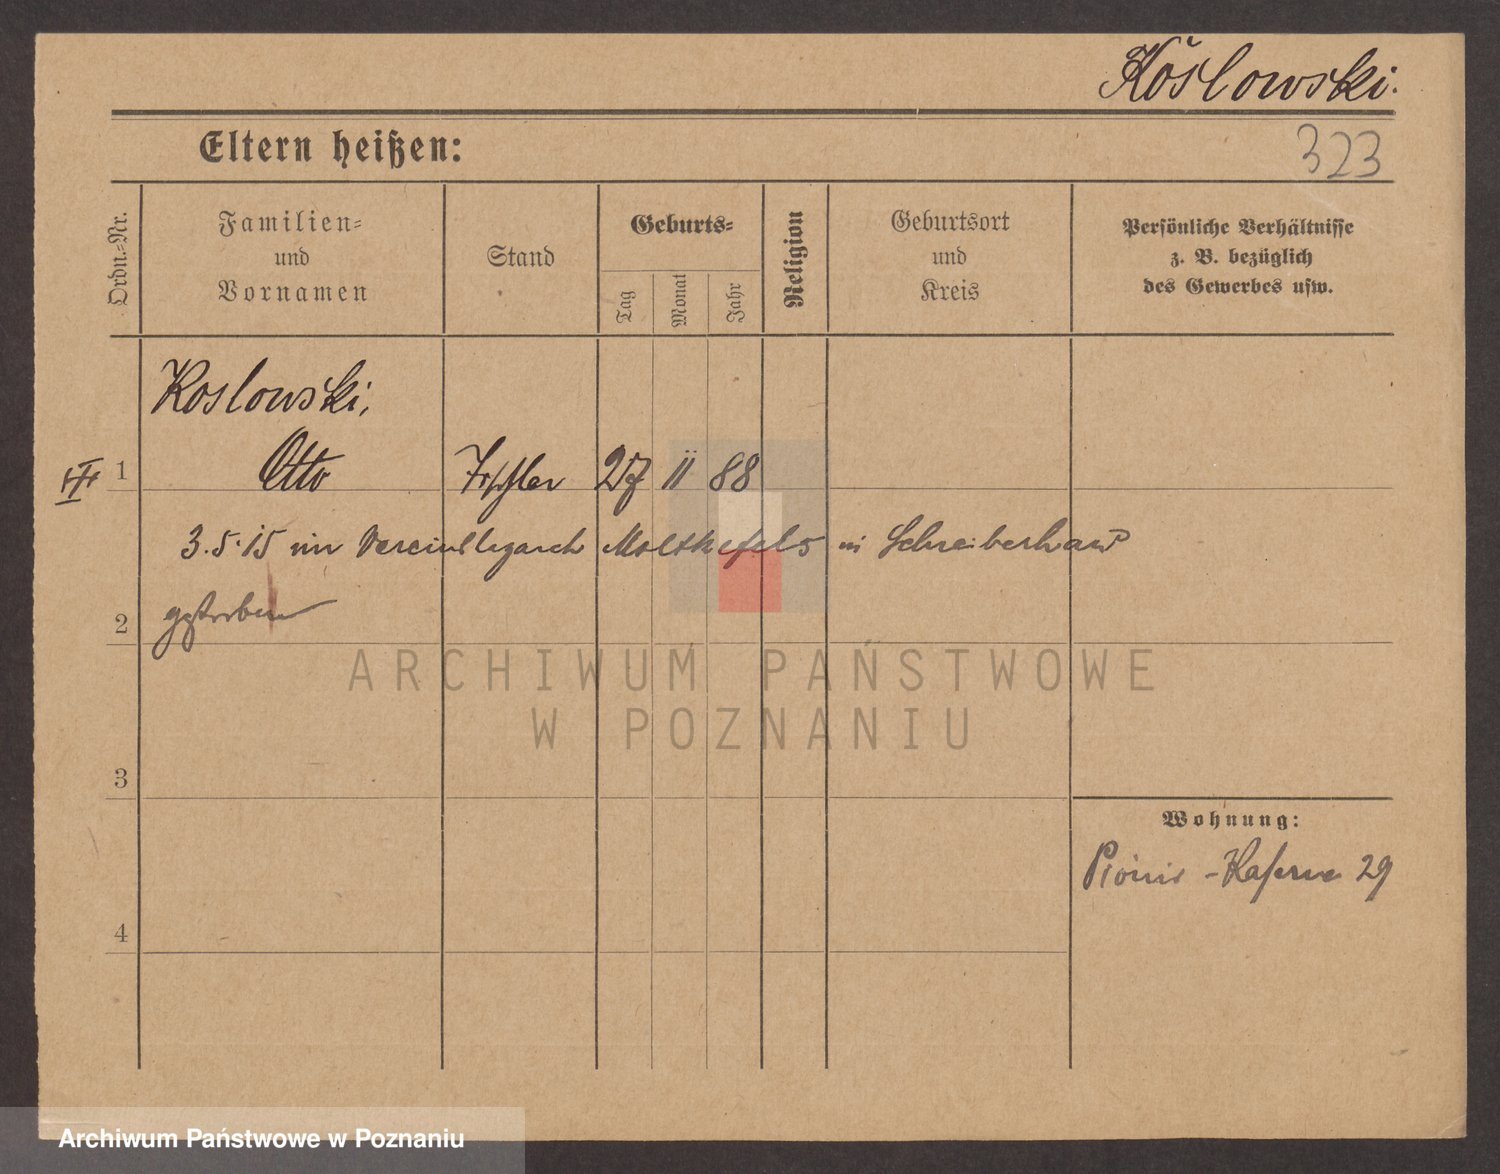 Köslowski.
323
Eltern heißen:
Ordn.-Nr.
Familien-
und
Vornamen
Stand
Geburts-
Tag
Monat
Jahr
Religion
Geburtsort
und
Kreis
Persönliche Verhältnisse
z. B. bezüglich
des Gewerbes usw.
Koslowski,
1 Otto Tischler 27 II 88
3.5.15 im Moltkefels in Schreiberhau
2 gestorben
3
4
Wohnung:
Pionier-Kaserne 29
ARCHIWUM PAŃSTWOWE
W POZNANIU
Archiwum Państwowe w Poznaniu